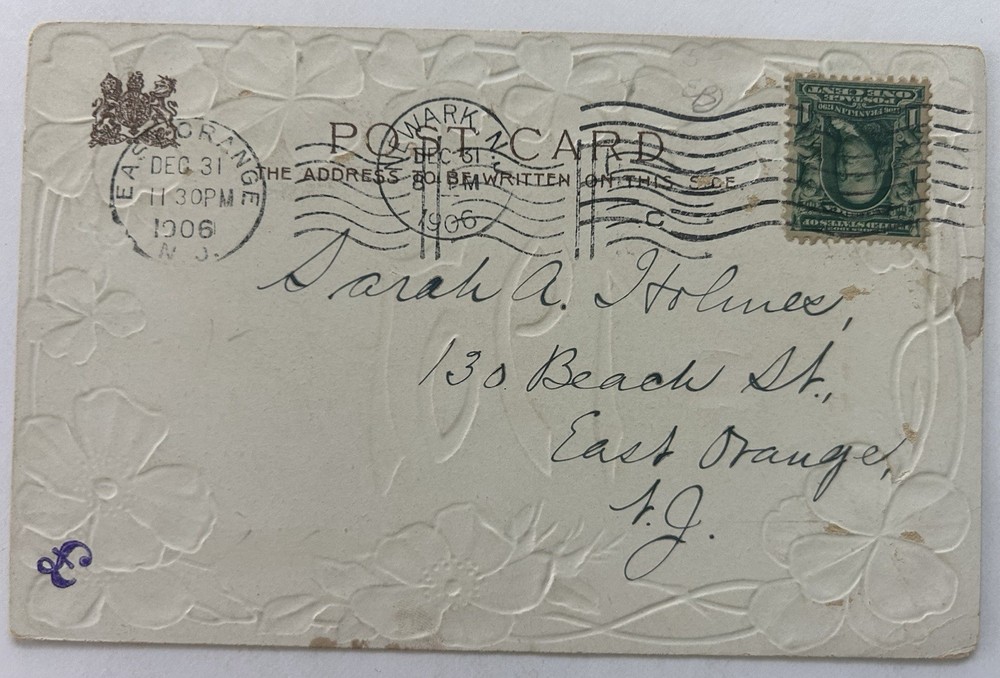 POST CARD
THE ADDRESS TO BE WRITTEN ON THIS SIDE
EAST ORANGE
DEC 31
11 30PM
1906
N.J.
NEWARK, N.J.
DEC 31
8 PM
1906
C
POSTAGE
ONE CENT
FRANKLIN
1
1
Sarah A. Holmes,
130 Beach St.,
East Orange,
N.J.